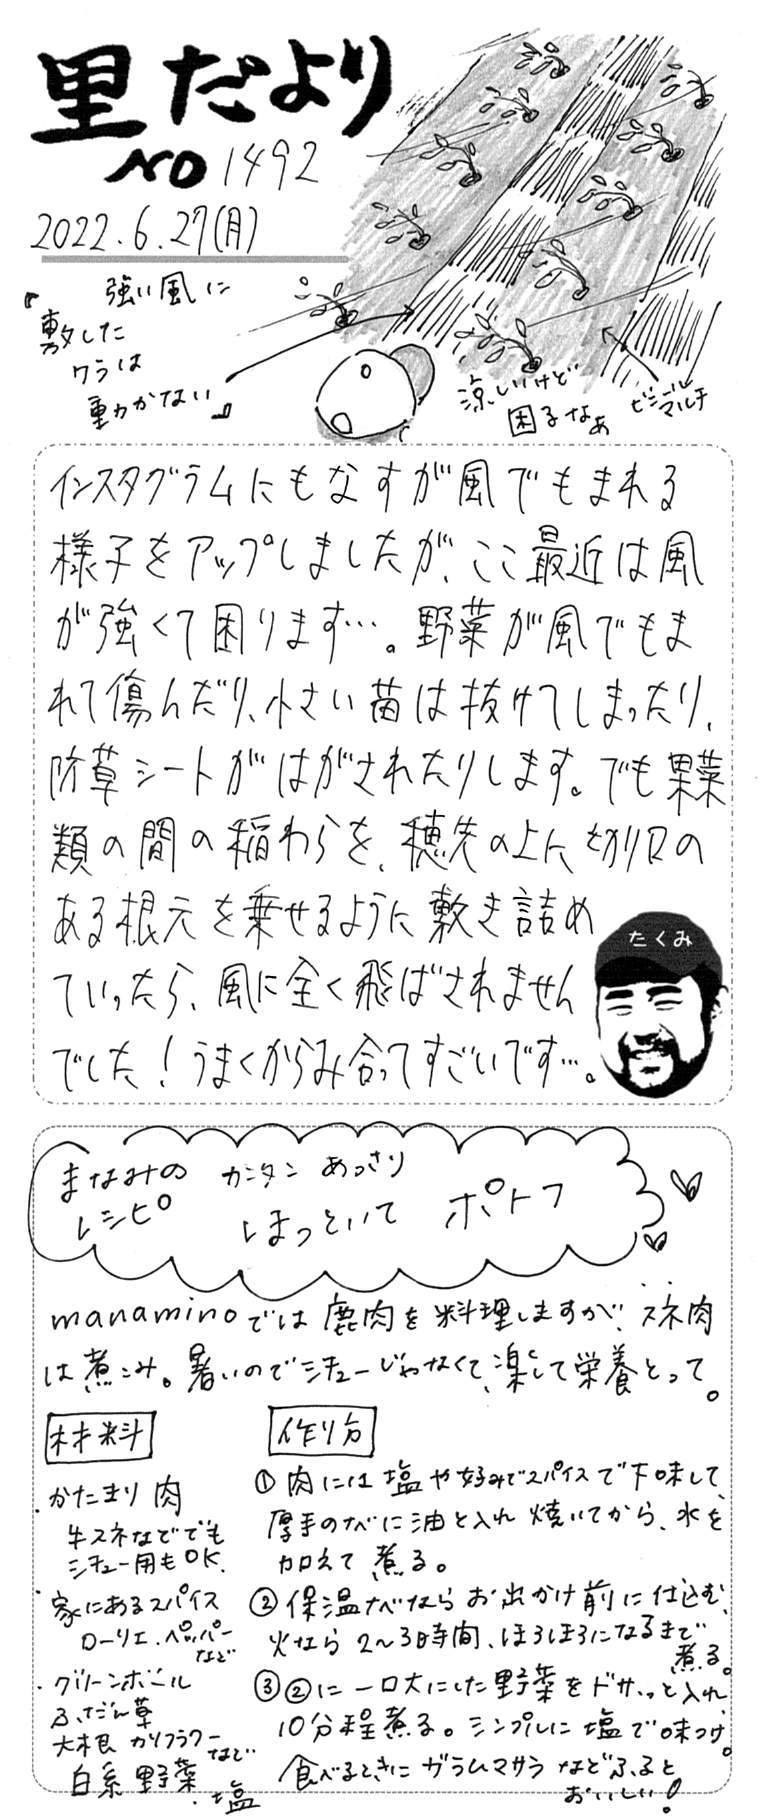 里だより
NO 1492
2022.6.27(月)
『強い風に
敷した
ワラは
動かない』
涼しいけど
困るなあ
ビニール
マルチ
インスタグラムにもなすが風でもまれる
様子をアップしましたが、ここ最近は風
が強くて困ります…。野菜が風でもま
れて傷んだり、小さい苗は抜けてしまったり、
防草シートがはがされたりします。でも果菜
類の間の稲わらを、穂先の上に切り口の
ある根元を乗せるように敷き詰め
ていったら、風に全く飛ばされません
でした！うまくからみ合ってすごいです…。
たくみ
まなみの
レシピ
カンタン あっさり
ほっといて ポトフ
manaminoでは鹿肉を料理しますが、スネ肉
は煮こみ。暑いのでシチューじゃなくて、楽して栄養とって。
材料
・かたまり肉
牛スネなどでも
シチュー用もOK.
・家にあるスパイス
ローリエ、ペッパー
など
・グリーンボール
ふだん草
大根 カリフラワー
など
白系野菜
・塩
作り方
①肉には塩や好みでスパイスで下味して、
厚手のナベに油と入れ焼いてから、水を
加えて煮る。
②保温ナベならお出かけ前に仕込む、
火なら2〜3時間、ほろほろになるまで
煮る。
③②に一口大にした野菜をドサッと入れ、
10分程煮る。シンプルに塩で味つけ。
食べるときにガラムマサラなどふると
おいしい！